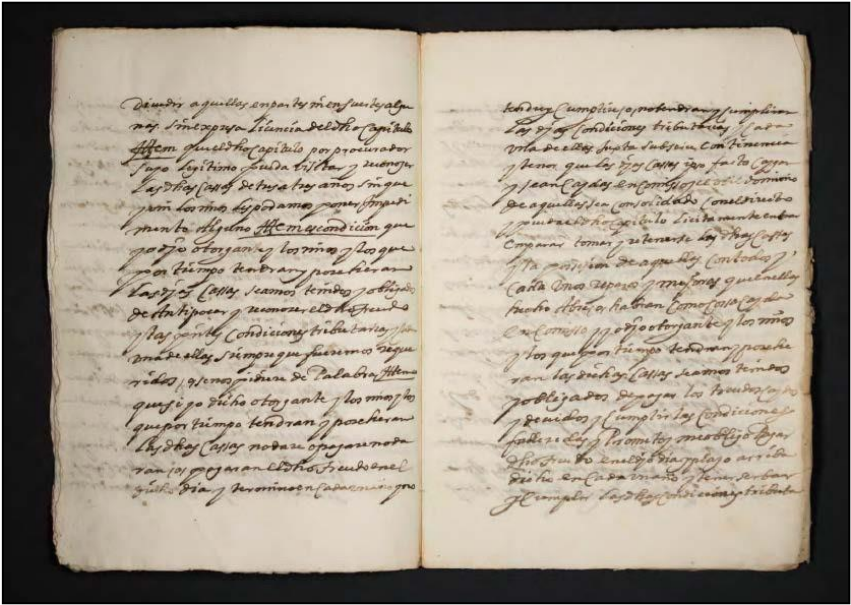 Dividir aquellas en partes ni en suertes algu
nas sin expresa licencia del dho Capitulo
Attem que el dho Capitulo por procurador
suyo legitimo pueda visitar y reconozer
las dhas Cassas de tres a tres años sin que
yo ni los mios les podamos poner impedi
mento alguno Attem es condicion que
yo dho otorgante y los mios y los que
por tiempo tendran y posseheran
las dhas Cassas seamos tenidos y obligados
de antipocar y reconozer el dho treudo
y las Condiciones tributarias y
una de ellas siempre que fueremos reque
ridos de Palabra Attem
que si yo dicho otorgante y los mios y los
que por tiempo tendran y posseheran
las dhas Cassas no dare o pagare no da
ran o pagaran el dho treudo en el
dicho dia y termino en cada un año y no
tendre y Cumplire o no tendran y cumpliran
las dhas Condiciones tributarias y Cada
una de ellas Justa su serie Continencia
y tenor que las dhas Cassas ipso facto Caygan
y sean Caydas en Comisso y el util dominio
de aquellas sea consolidado con el directo
y pueda el dho Capitulo licitamente entrar
emparar tomar y retenerse las dhas Cassas
y la possesion de aquellas con todos y
cada unos reparos y mejoras que en ellas
hecho habran Como Cossa Cayda
en Comisso y yo dho otorgante y los mios
y los que por tiempo tendran y posehe
ran las dichas Cassas seamos tenidos
y obligados de pagar los treudos Caydos
y devidos y Cumplir las Condiciones
y Prometo y me obligo Pagar
dho treudo en el dho dia y plazo arriba
dicho en Cada un año y tener serbar
y Cumplir las dhas Condiciones tributa